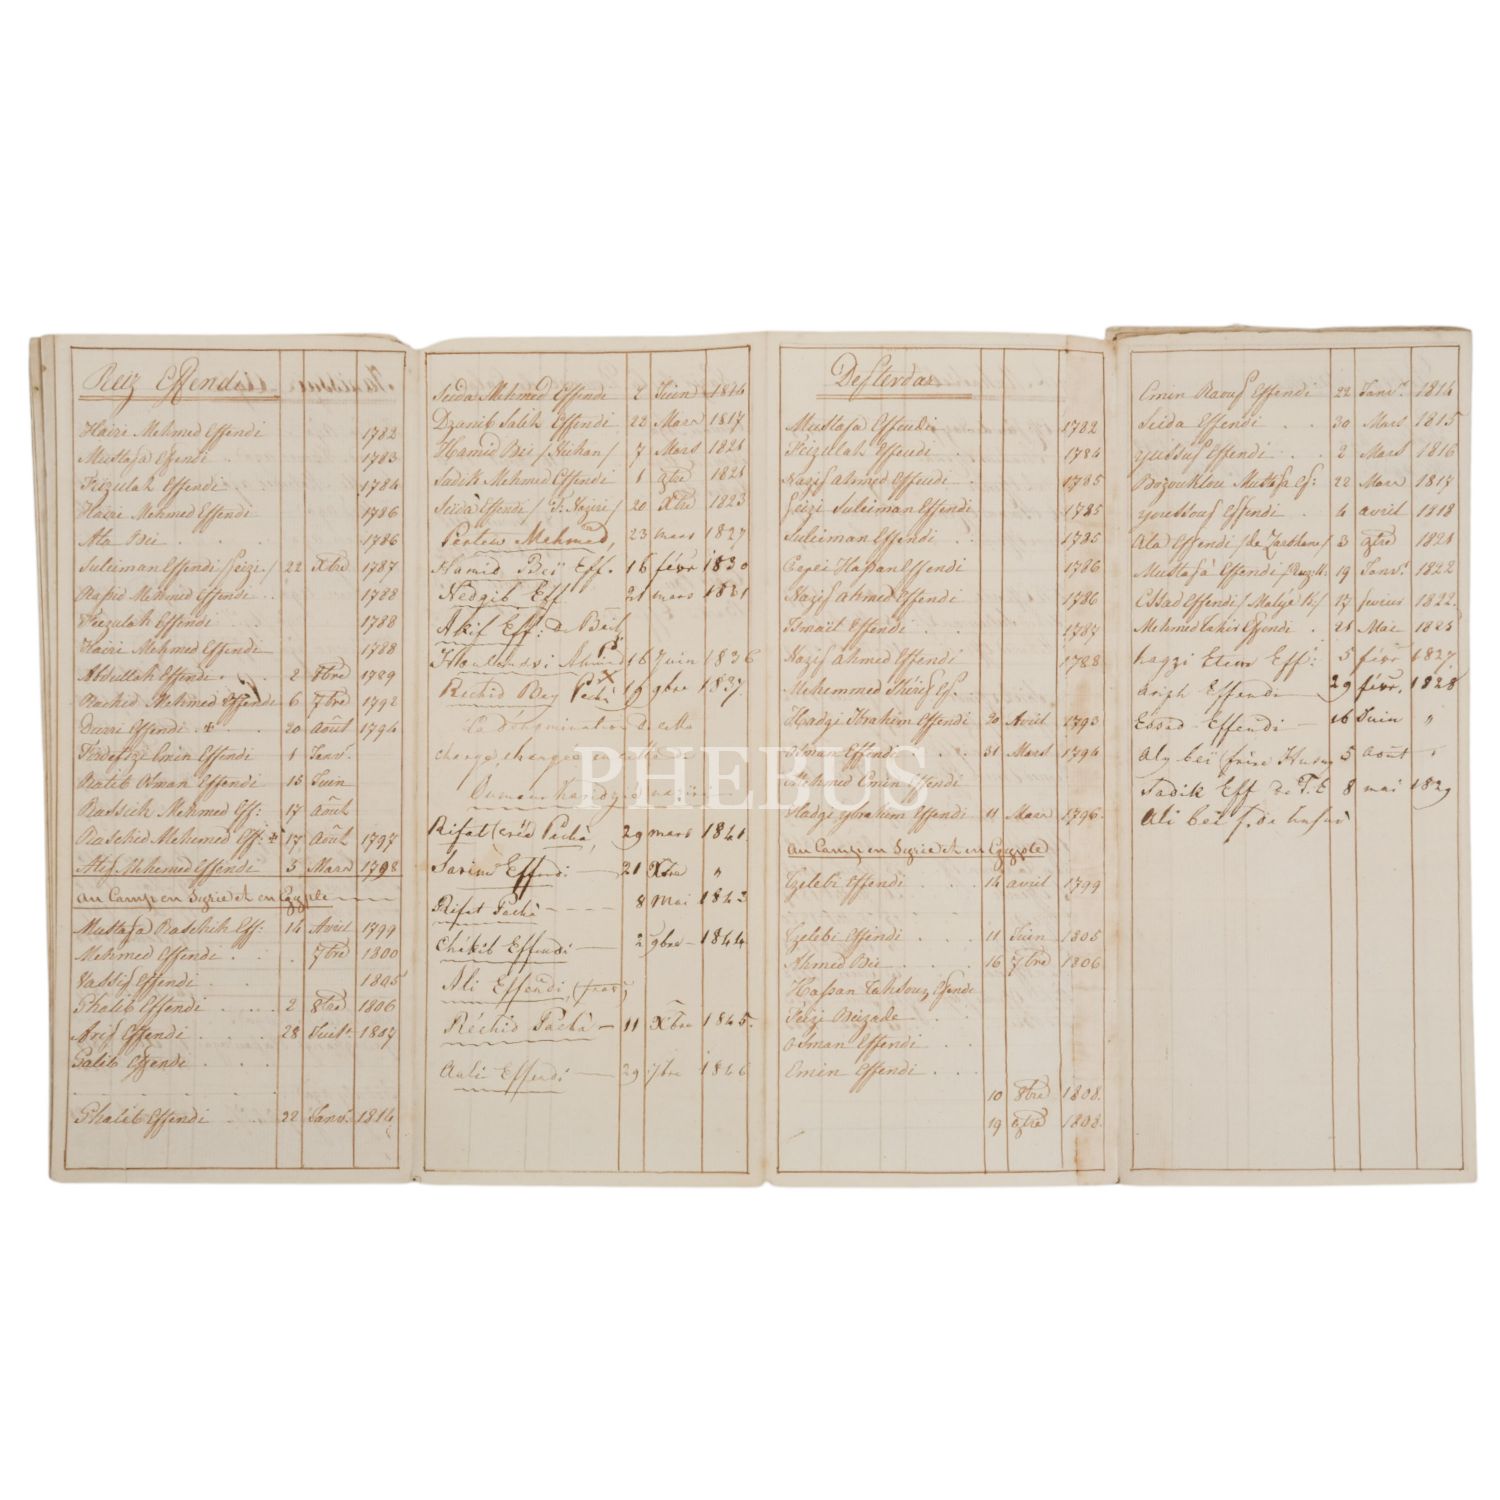 Reiz Effendis
Hairi Mehmed Effendi 1782
Mustafa Effendi 1783
Feizulah Effendi 1784
Hairi Mehmed Effendi 1786
Ata Bei 1786
Suleiman Effendi /feizi/ 22 Xbre 1787
Raschid Mehmed Effendi 1788
Feizulah Effendi 1788
Hairi Mehmed Effendi 1788
Abdullah Effendi 2 8bre 1789
Rachid Mehmed Effendi 6 7bre 1792
Durri Effendi 20 août 1794
Emin Effendi 1 Janv.
Ratib Osman Effendi 15 Juin
Raschid Mehmed Eff: 17 août
Raschid Mehemed Eff: 17 Août 1797
Atif Mehemed Effendi 5 Mars 1798
au Camp en Syrie et en Egypte
Mustafa Raschih Eff: 14 Avril 1799
Mehmed Effendi 7bre 1800
Vassif Effendi 1805
Ghalib Effendi 2 8bre 1806
Arif Effendi 28 Juil. 1807
Galib Effendi
Ghalib Effendi 22 Janv. 1814
Seida Mehmed Effendi 2 Juin 1814
Dzanib Salih Effendi 22 Mars 1817
Hamid Bei 7 Mars 1821
Sadik Mehmed Effendi 1 9bre 1821
Seida Effendi 20 Xbre 1823
Pertew Mehmed, 23 mars 1827
Hamid Beï Eff. 16 févr 1830
Nedgib Eff 21 mars 1831
Akif Eff:
16 Juin 1836
Rechid Bey Pacha 19 9bre 1837
la dénomination de cette
charge, changée en celle de
Oumour haridgié naziri
Rifat Pachà, 29 mars 1841
Sarim Effendi 21 Xbre "
Rifat Pachà 8 Mai 1843
Chékib Effendi 2 9bre 1844
Ali Effendi,
Réchid Pachà 11 Xbre 1845
Aali Effendi 29 7bre 1846
Defterdar
Mustafa Effendi 1782
Feizulah Effendi 1784
Nazif Ahmed Effendi 1785
Feizi Suleiman Effendi 1785
Suleiman Effendi 1785
Hassan Effendi 1786
Nazif Ahmed Effendi 1786
Ismaïl Effendi 1787
Nazif Ahmed Effendi 1788
Mehemmed Shérif Ef.
Hadgi Ibrahim Effendi 20 Avril 1793
Osman Effendi 31 Mars 1794
Mehmed Emin Effendi
Hadgi Ybrahim Effendi 11 Mars 1796
au Camp en Syrie et en Egypte
Tzelebi Effendi 14 avril 1799
Tzelebi Effendi 11 Juin 1805
Ahmed Bei 16 7bre 1806
Hassan Tahsouz Effendi
Feizi Beizade
Osman Effendi
Emin Effendi
10 8bre 1808
19 9bre 1808
Emin Raouf Effendi 22 Janv. 1814
Seida Effendi 30 Mars 1815
Yussuf Effendi 2 Mars 1816
Bozouklou Mustafa Ef: 22 Mars 1817
Youssouf Effendi 4 avril 1818
Ata Effendi 3 9bre 1821
Mustafa Effendi 19 Janv. 1822
Essad Effendi 17 fevrier 1822
Mehmed Tahir Effendi 21 Mai 1825
Etem Eff: 5 févr 1827
Effendi 29 févr. 1828
Essad Effendi 16 Juin "
Aly beï 5 août
Sadik Eff de T.E 8 mai 1829
Ali beï f. de
PHEBUS